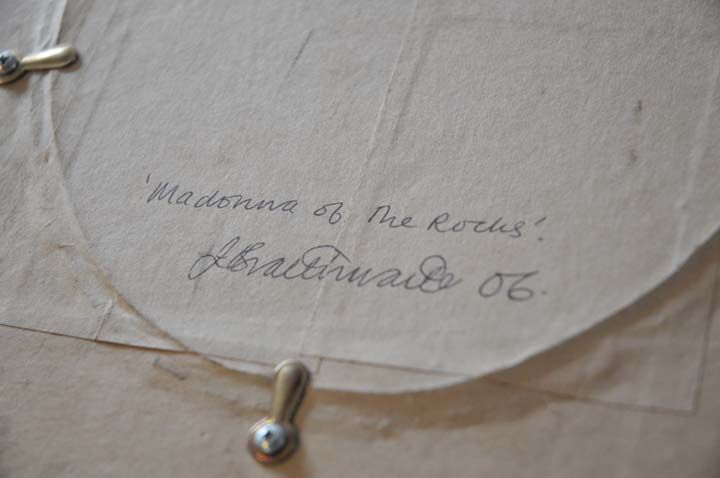 'Madonna of The Rocks'.
J Braithwaite 06.